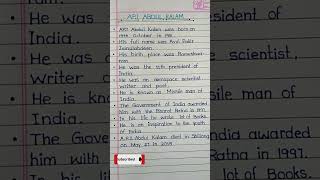 APJ ABDUL KALAM
APJ Abdul Kalam was born on
15th October in 1931.
His full name was Avul Pakir
Jainulabdeen.
His birth place was Rameshwa-
ram.
He was the 11th president of
India.
He was an aerospace scientist
writer and poet.
He is known as Missile man of
India.
The Government of India awarded
him with the Bharat Ratna in 1997.
In his life he wrote lot of Books.
He is an inspiration to the youth
of India.
A.P.J Abdul Kalam died in Shillong
on May 27 in 2015
subscribed
He was
India.
He was
Writer
He is
India.
The Gov
him with
In his
scientist
man of
awarded
Ratna in 1997.
of Books.